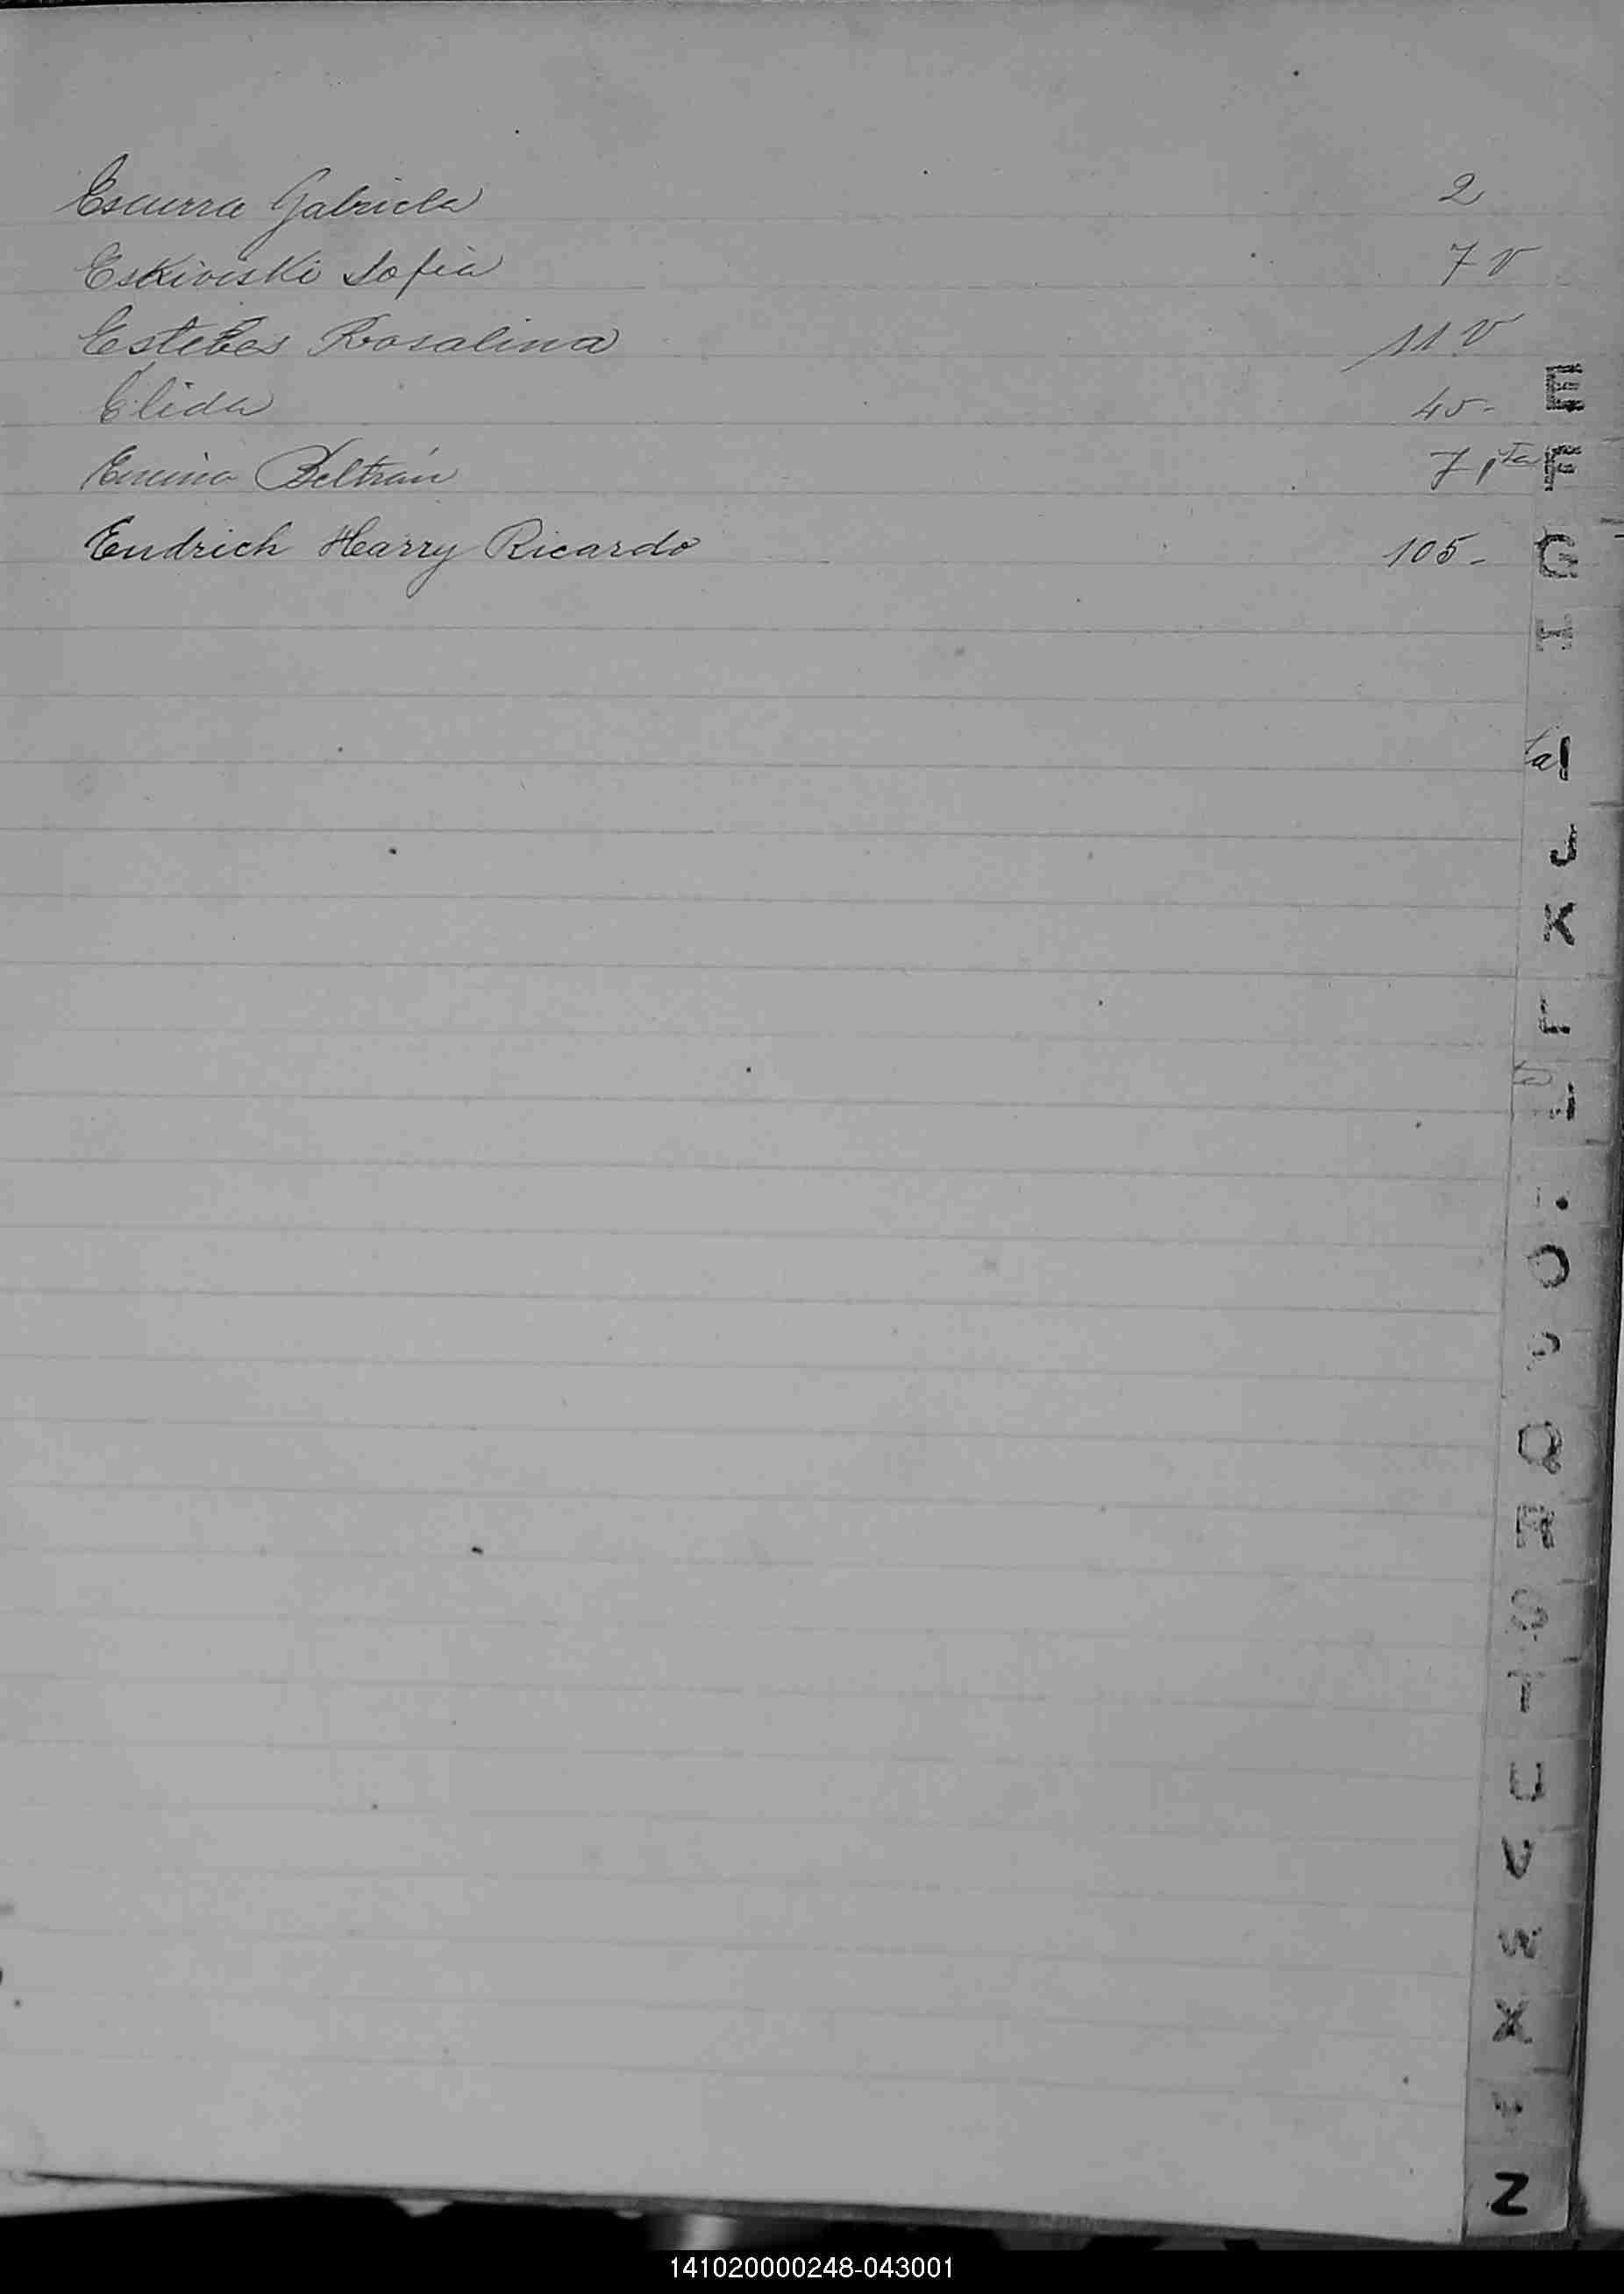 Escurra Gabriela 2
Eskiviski Sofia 7 v
Estebes Rosalina 11 v
Elida 45-
Beltrán 7 vta
Endrich Harry Ricardo 105-
E
F
G
ta I
J
K
L
O
P
Q
R
S
T
U
V
W
X
Y
Z
141020000248-043001